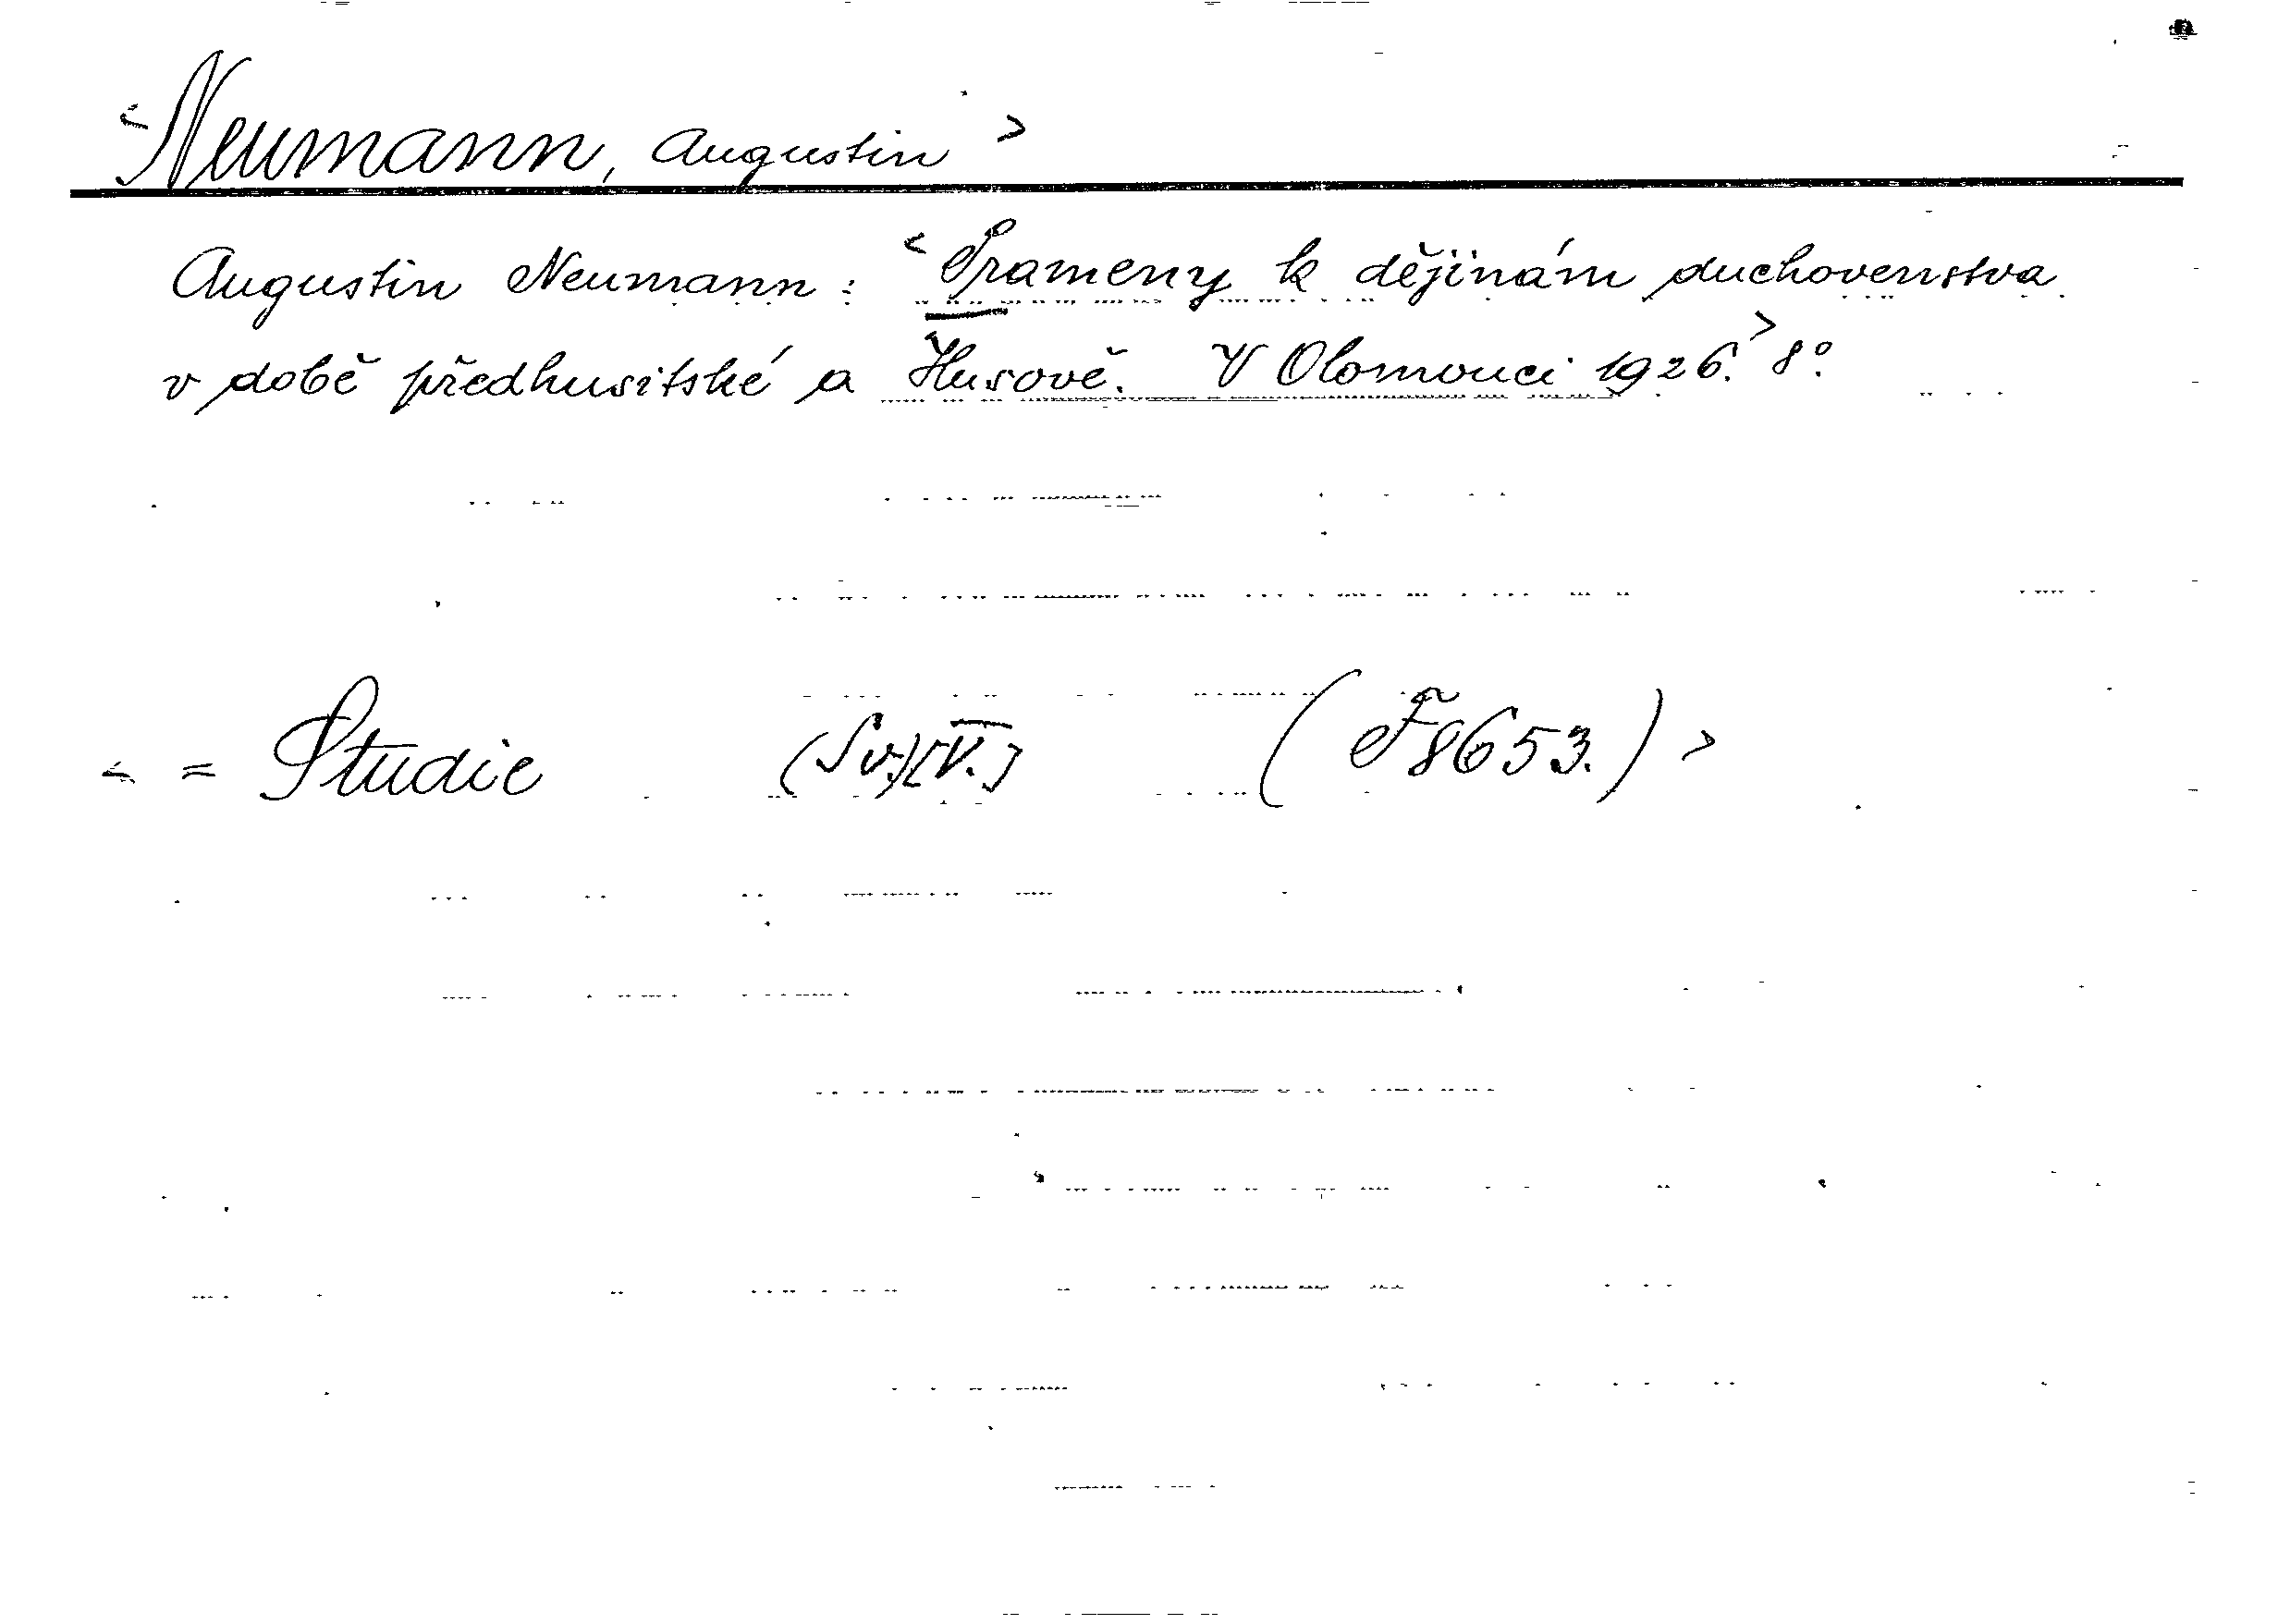 <Neumann, Augustin>
Augustin Neumann: <Prameny k dějinám duchovenstva
v době předhusitské a Husově. V Olomouci 1926.> 8°.
< = Studie (Sv.)[V.] (F8653.) >